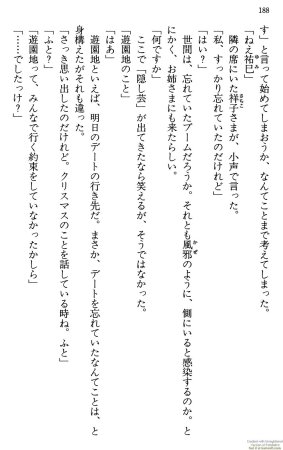 188
す」と言って始めてしまおうか、なんてことまで考えてしまった。
「ねえ祐巳」
隣の席にいた祥子さまが、小声で言った。
「私、すっかり忘れていたのだけれど」
「はい?」
世間は、忘れていたブームだろうか。それとも風邪のように、側にいると感染するのか。と
にかく、お姉さまにも来たらしい。
「何ですか」
ここで「隠し芸」が出てきたなら笑えるが、そうではなかった。
「遊園地のこと」
遊園地といえば、明日のデートの行き先だ。まさか、デートを忘れていたなんてことは、と
身構えたがそれも違った。
「さっき思い出したのだけれど。クリスマスのことを話している時ね。ふと」
「ふと?」
「遊園地って、みんなで行く約束をしていなかったかしら」
「……でしたっけ?」